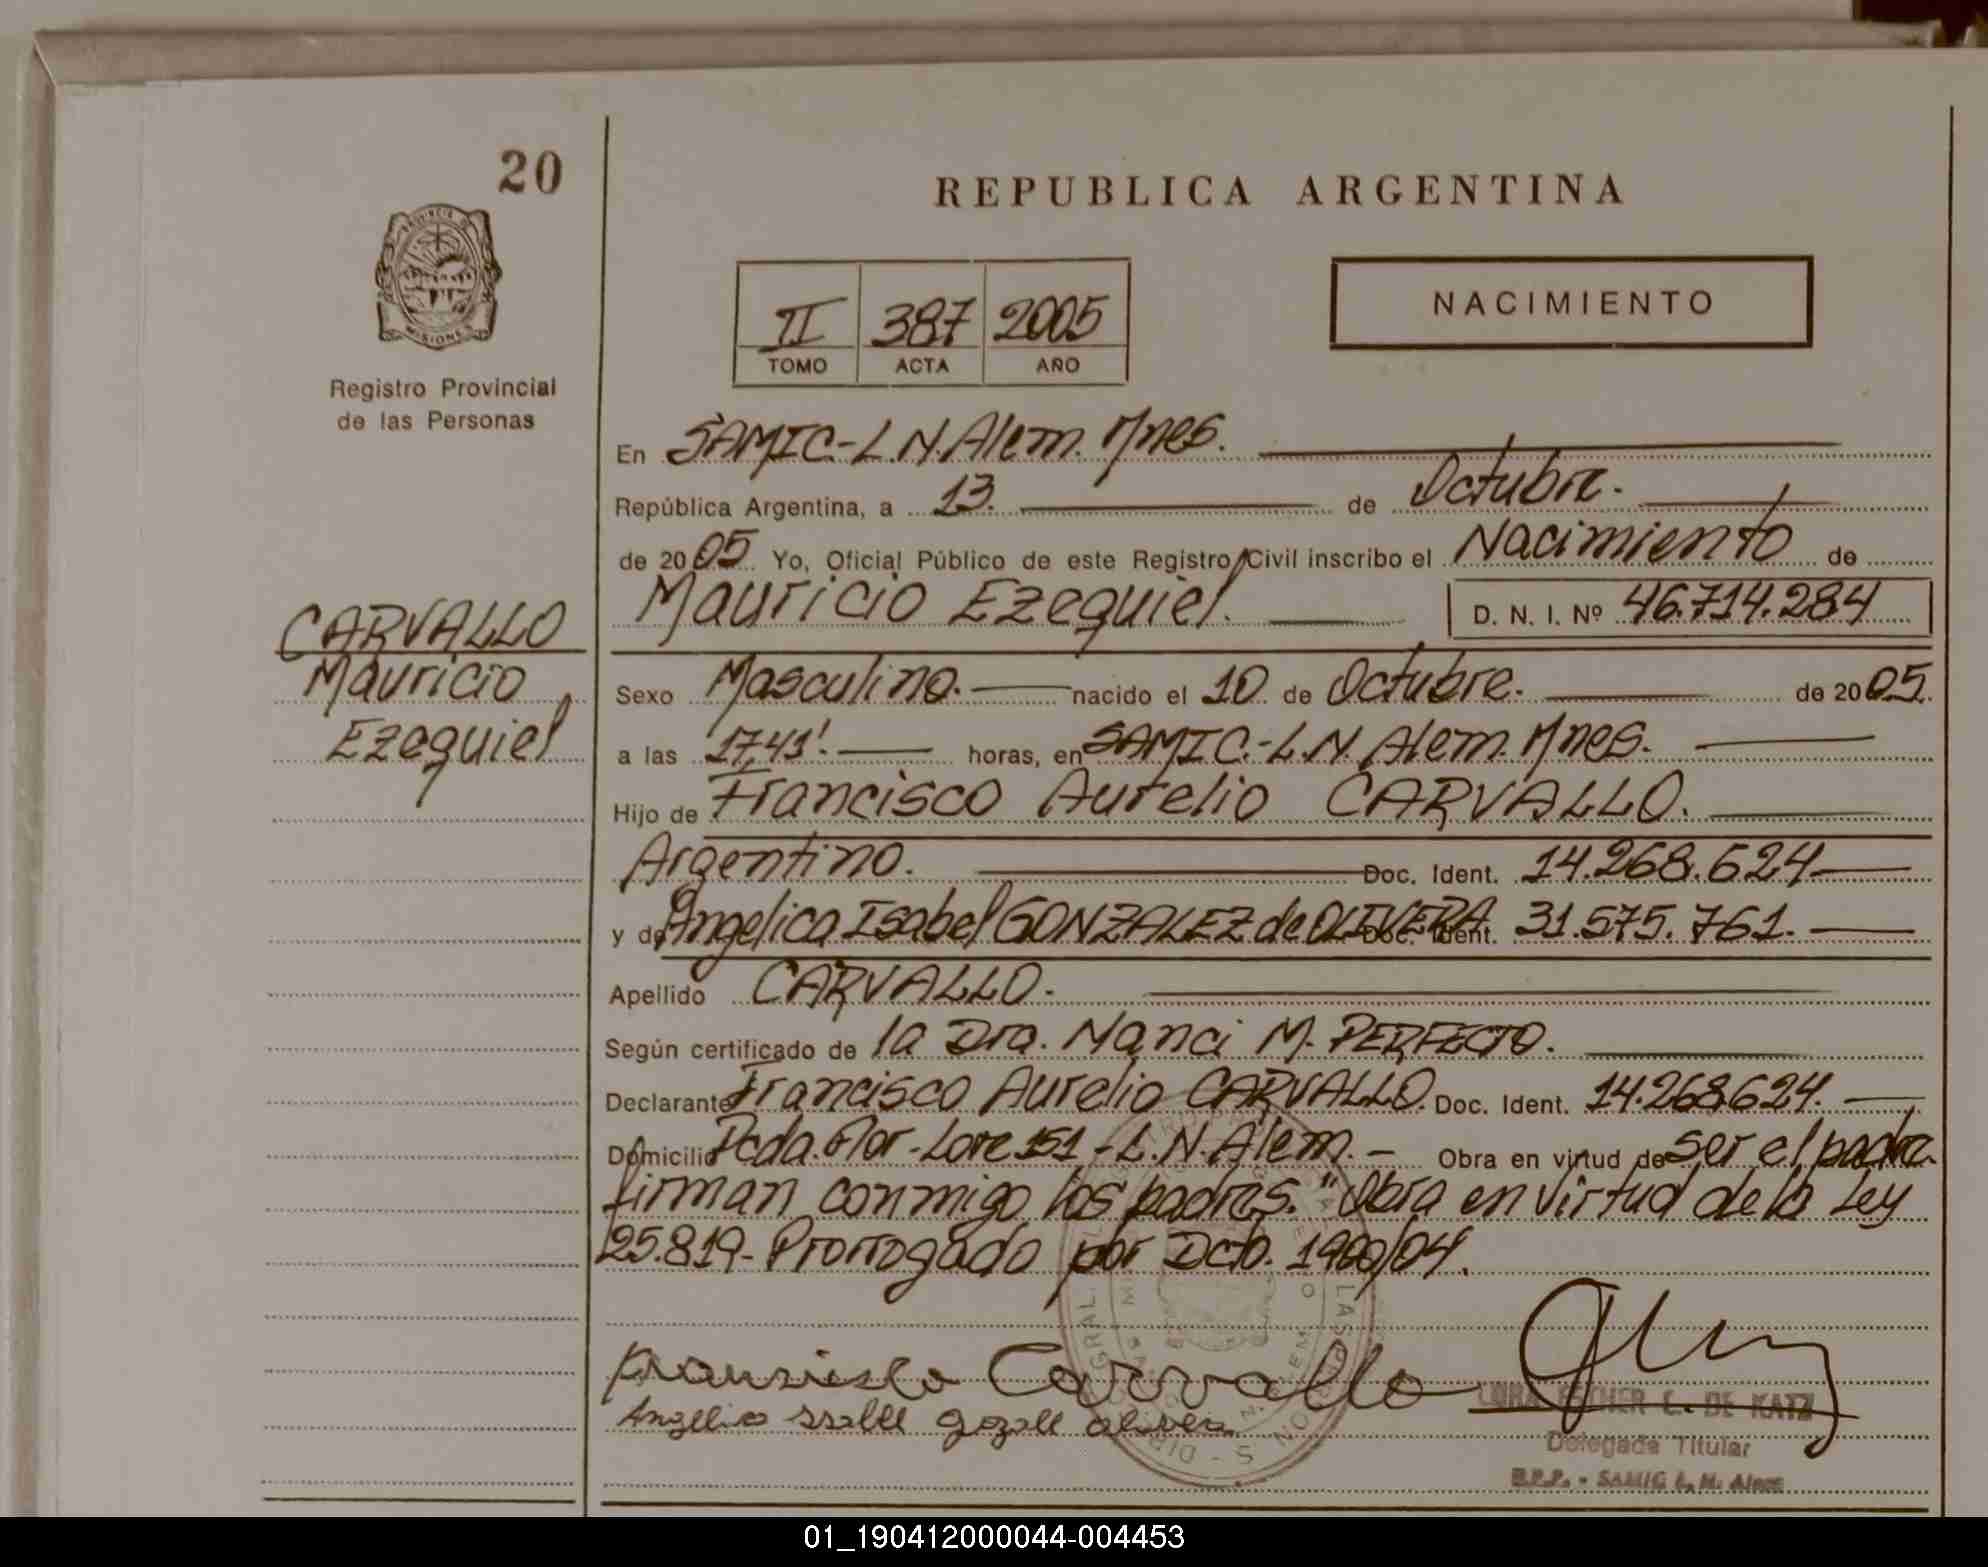 20
REPUBLICA ARGENTINA
II 387 2005
TOMO ACTA AÑO
NACIMIENTO
MISIONES
Registro Provincial
de las Personas
En SAMIC.-L.N.Alem. Mnes.
República Argentina, a 13. de Octubre.
de 2005 Yo, Oficial Público de este Registro Civil inscribo el Nacimiento de
Mauricio Ezequiel. D. N. I. Nº 46.714.284
CARVALLO
Mauricio
Ezequiel
Sexo Masculino. nacido el 10 de Octubre. de 2005.
a las 17,41'. horas, en SAMIC.-L.N. Alem. Mnes.
Hijo de Francisco Aurelio CARVALLO.
Argentino. Doc. Ident. 14.268.624
y de Angelica Isabel GONZALEZ de OLIVERA Doc. Ident. 31.575.761.
Apellido CARVALLO.
Según certificado de la Dra. Nanci M. PERFECTO.
Declarante Francisco Aurelio CARVALLO. Doc. Ident. 14.268.624.
Domicilio Pcda. Flor - Lote 151 - L.N. Alem. - Obra en virtud de ser el padre.
firman conmigo los padres. "Obra en virtud de la Ley
25.819- Prorrogado por Dcto. 1980/04.
Carvallo
ESTHER L. DE KATZ
Delegada Titular
R.P.P. - SAMIC L. N. Alem
01_190412000044-004453